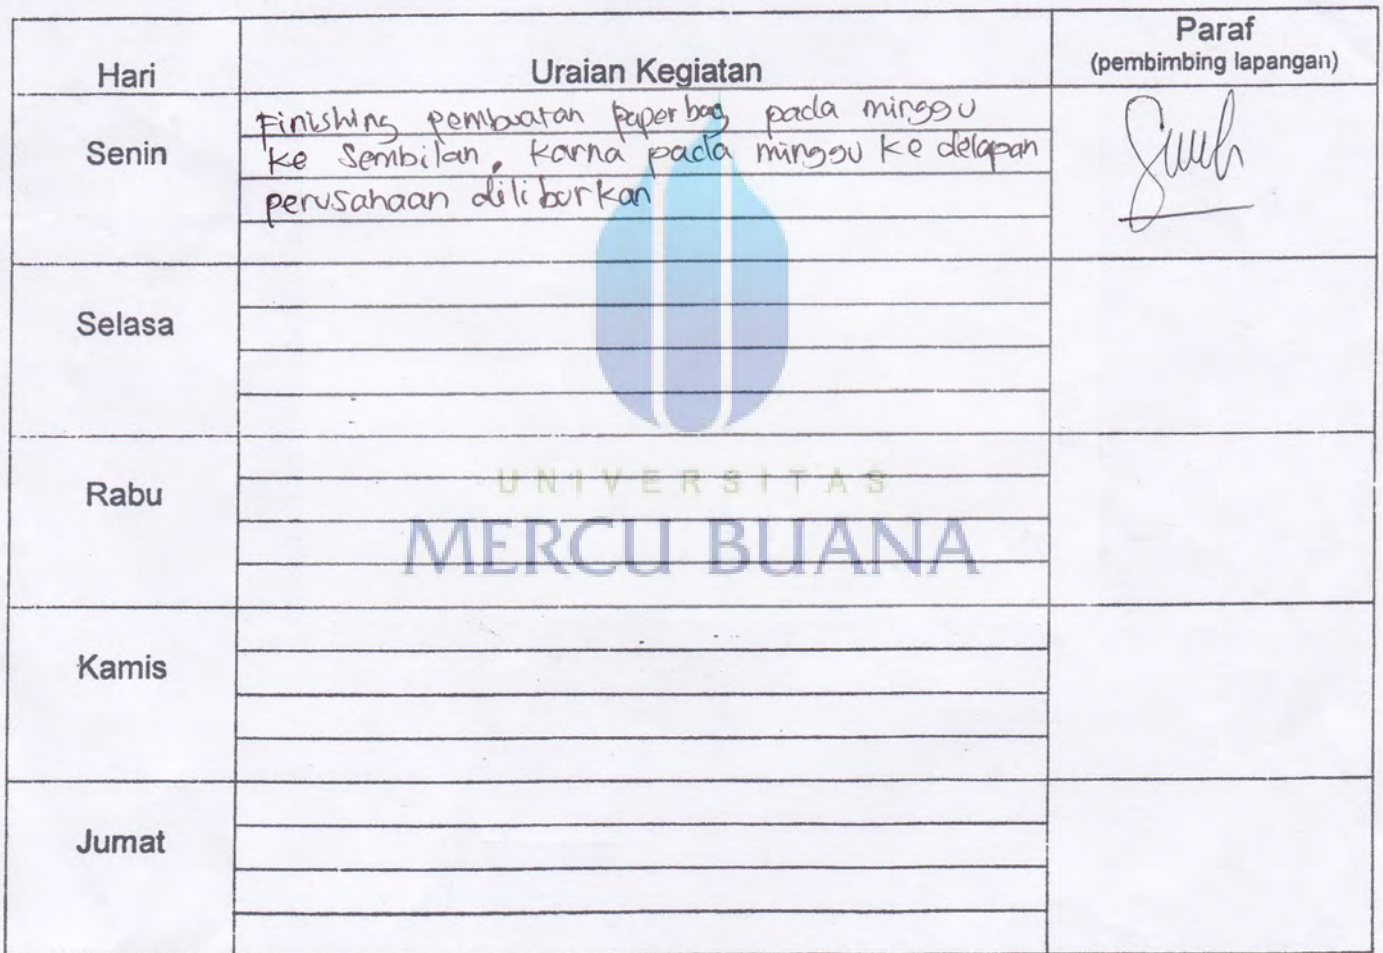 Hari
Uraian Kegiatan
Paraf
(pembimbing lapangan)
Senin
Finishing pembuatan paper bag pada minggu
ke Sembilan, karna pada minggu ke delapan
perusahaan diliburkan
Selasa
Rabu
UNIVERSITAS
MERCU BUANA
Kamis
Jumat